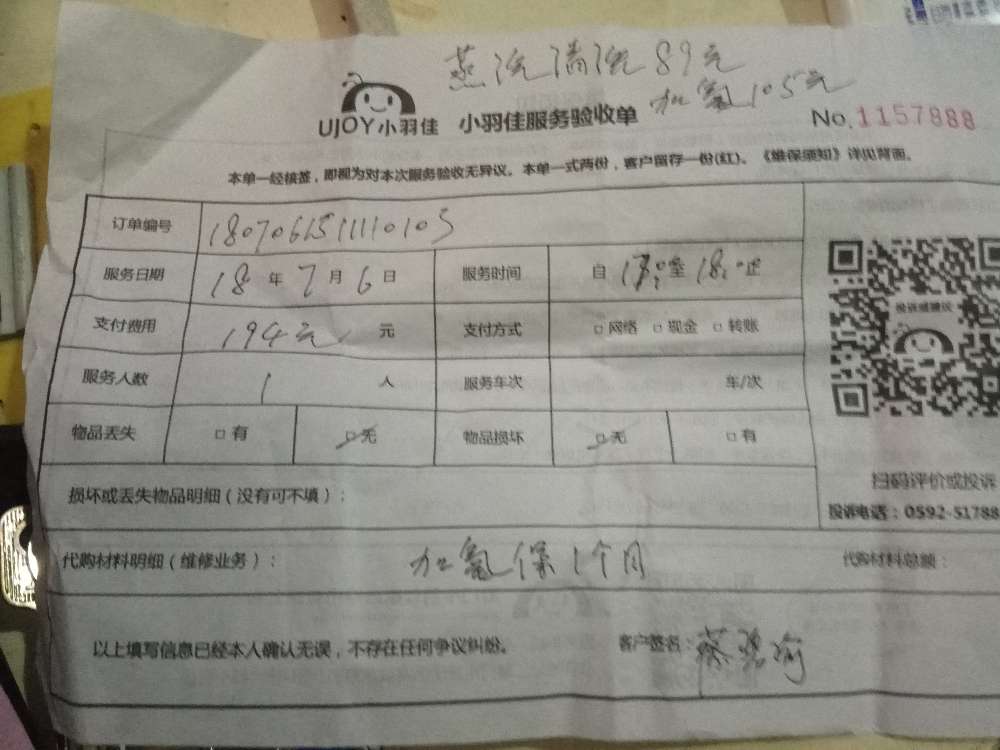 蒸汽清洗89元
加氟105元
UJOY小羽佳 小羽佳服务验收单
No.1157888
本单一经核签，即视为对本次服务验收无异议。本单一式两份，客户留存一份(红)。《维保须知》详见背面。
订单编号 1807061511110105
服务日期 18 年 7 月 6 日 服务时间 自 17:0 至 18:0 止
支付费用 194元 元 支付方式 □网络 □现金 □转账
投诉或建议
服务人数 1 人 服务车次 车/次
物品丢失 □有 □无 物品损坏 □无 □有
扫码评价或投诉
损坏或丢失物品明细（没有可不填）：
投诉电话：0592-51788
代购材料明细（维修业务）： 加氟保1个月 代购材料总额：
以上填写信息已经本人确认无误，不存在任何争议纠纷。 客户签名：